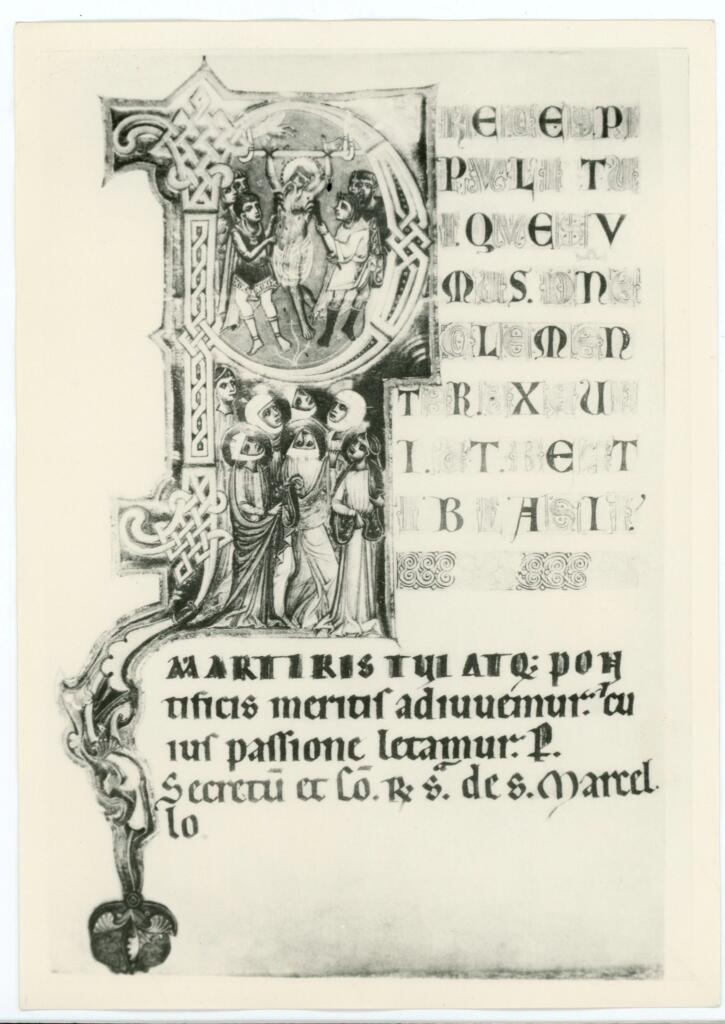 PRECES PO
PVLI TU
I.QVESV
MUS.DNE
CLEMEN
TER.EXAU
BEATI
MARTIRIS TUI ATQ: PON
tificis meritis adiuuemur: cu
ius passione letamur: P.
Secretū et Cō. R s. de s. Marcel
lo